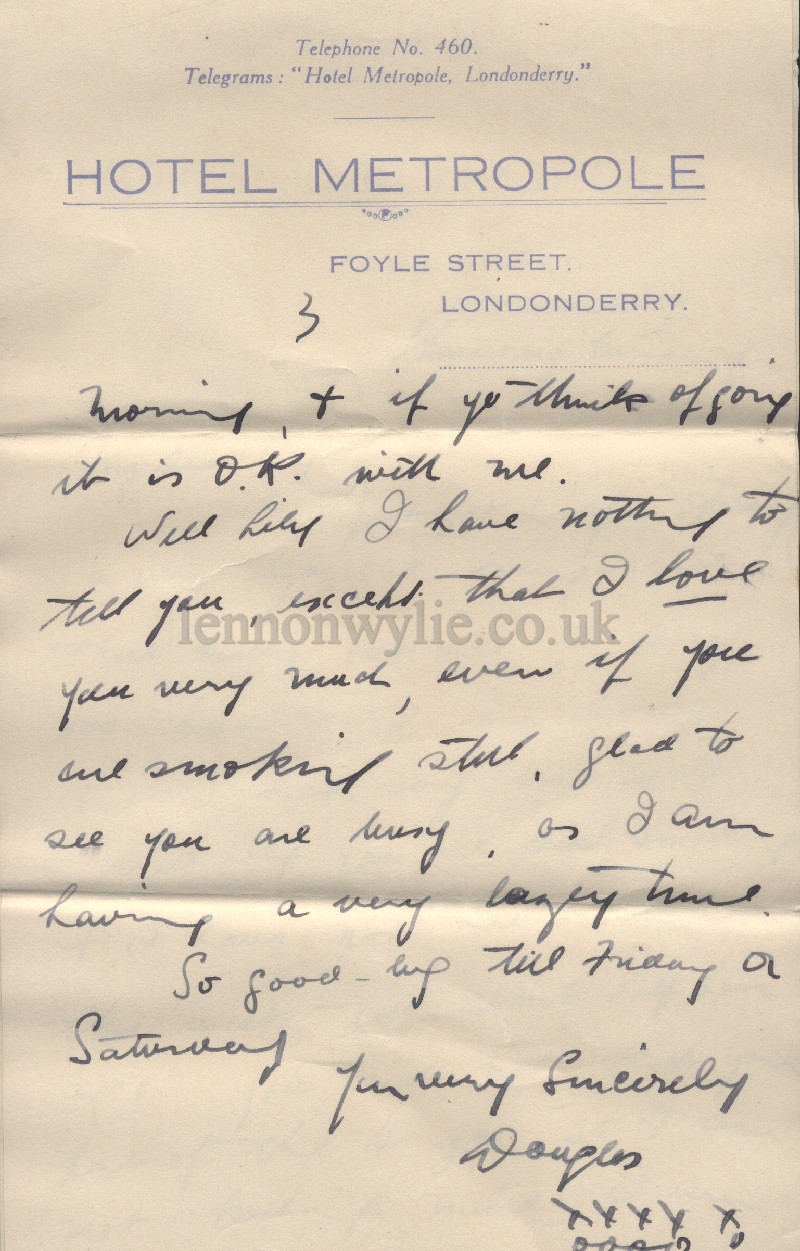 Telephone No. 460.
Telegrams: "Hotel Metropole, Londonderry."
HOTEL METROPOLE
FOYLE STREET.
LONDONDERRY.
3
morning, + if yo think of going
it is O.K. with me.
Well Lily I have nothing to
tell you, except that I love
lennonwylie.co.uk
you very much, even if you
are smoking still, glad to
see you are busy, as I am
having a very lazey time.
So good-by till Friday or
Saturday
Yours very Sincerely
Douglas
xxxx x